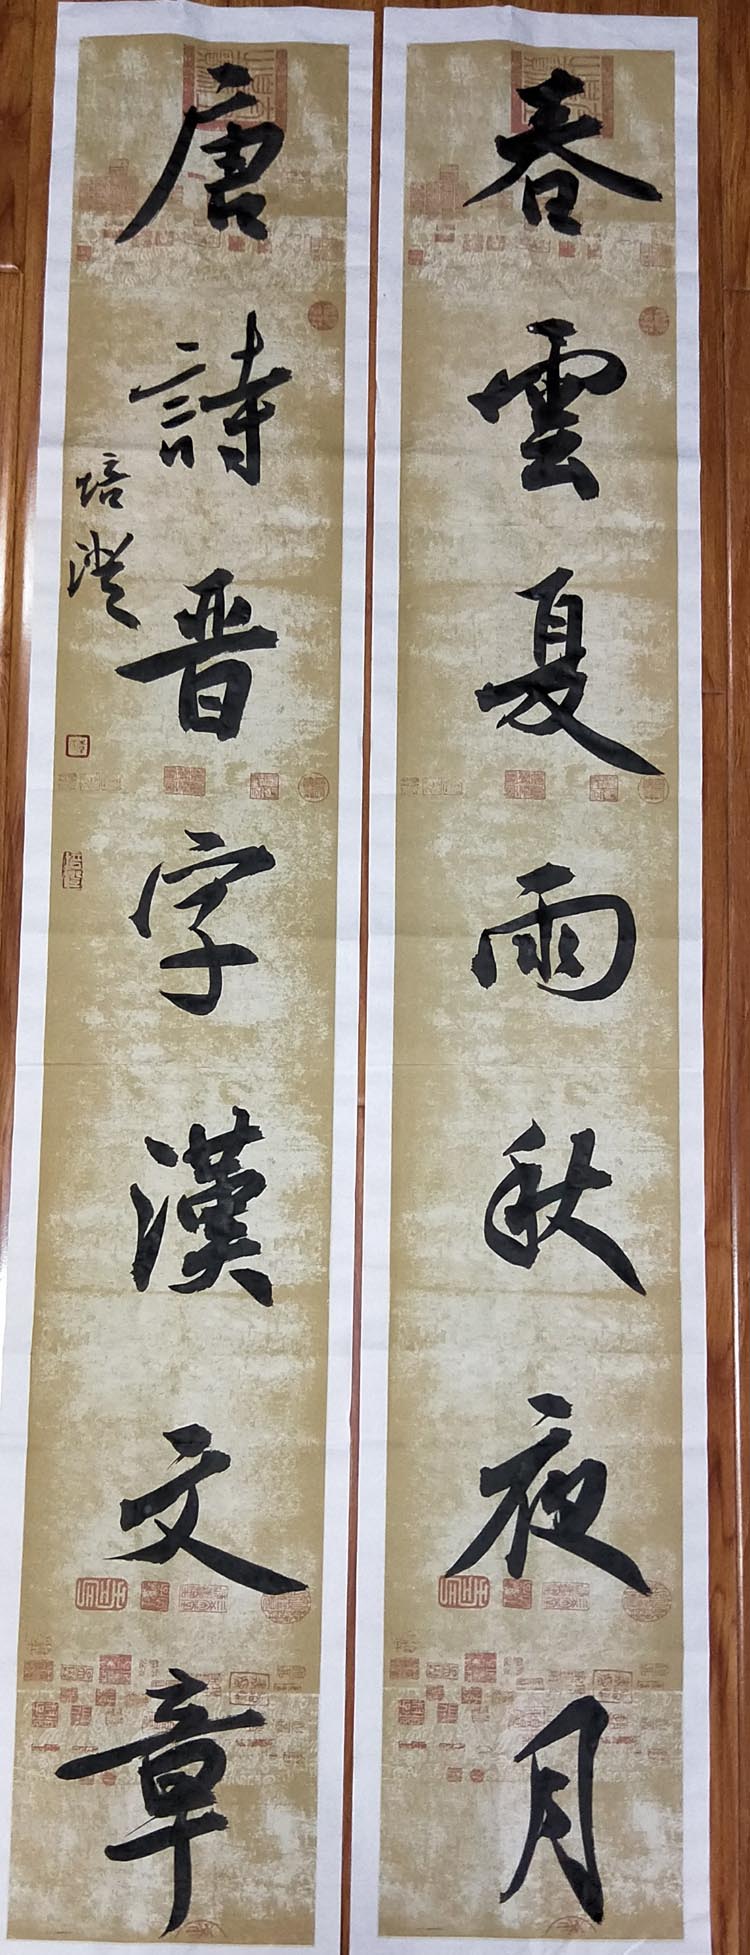 春雲夏雨秋夜月
唐詩晋字漢文章
培澄